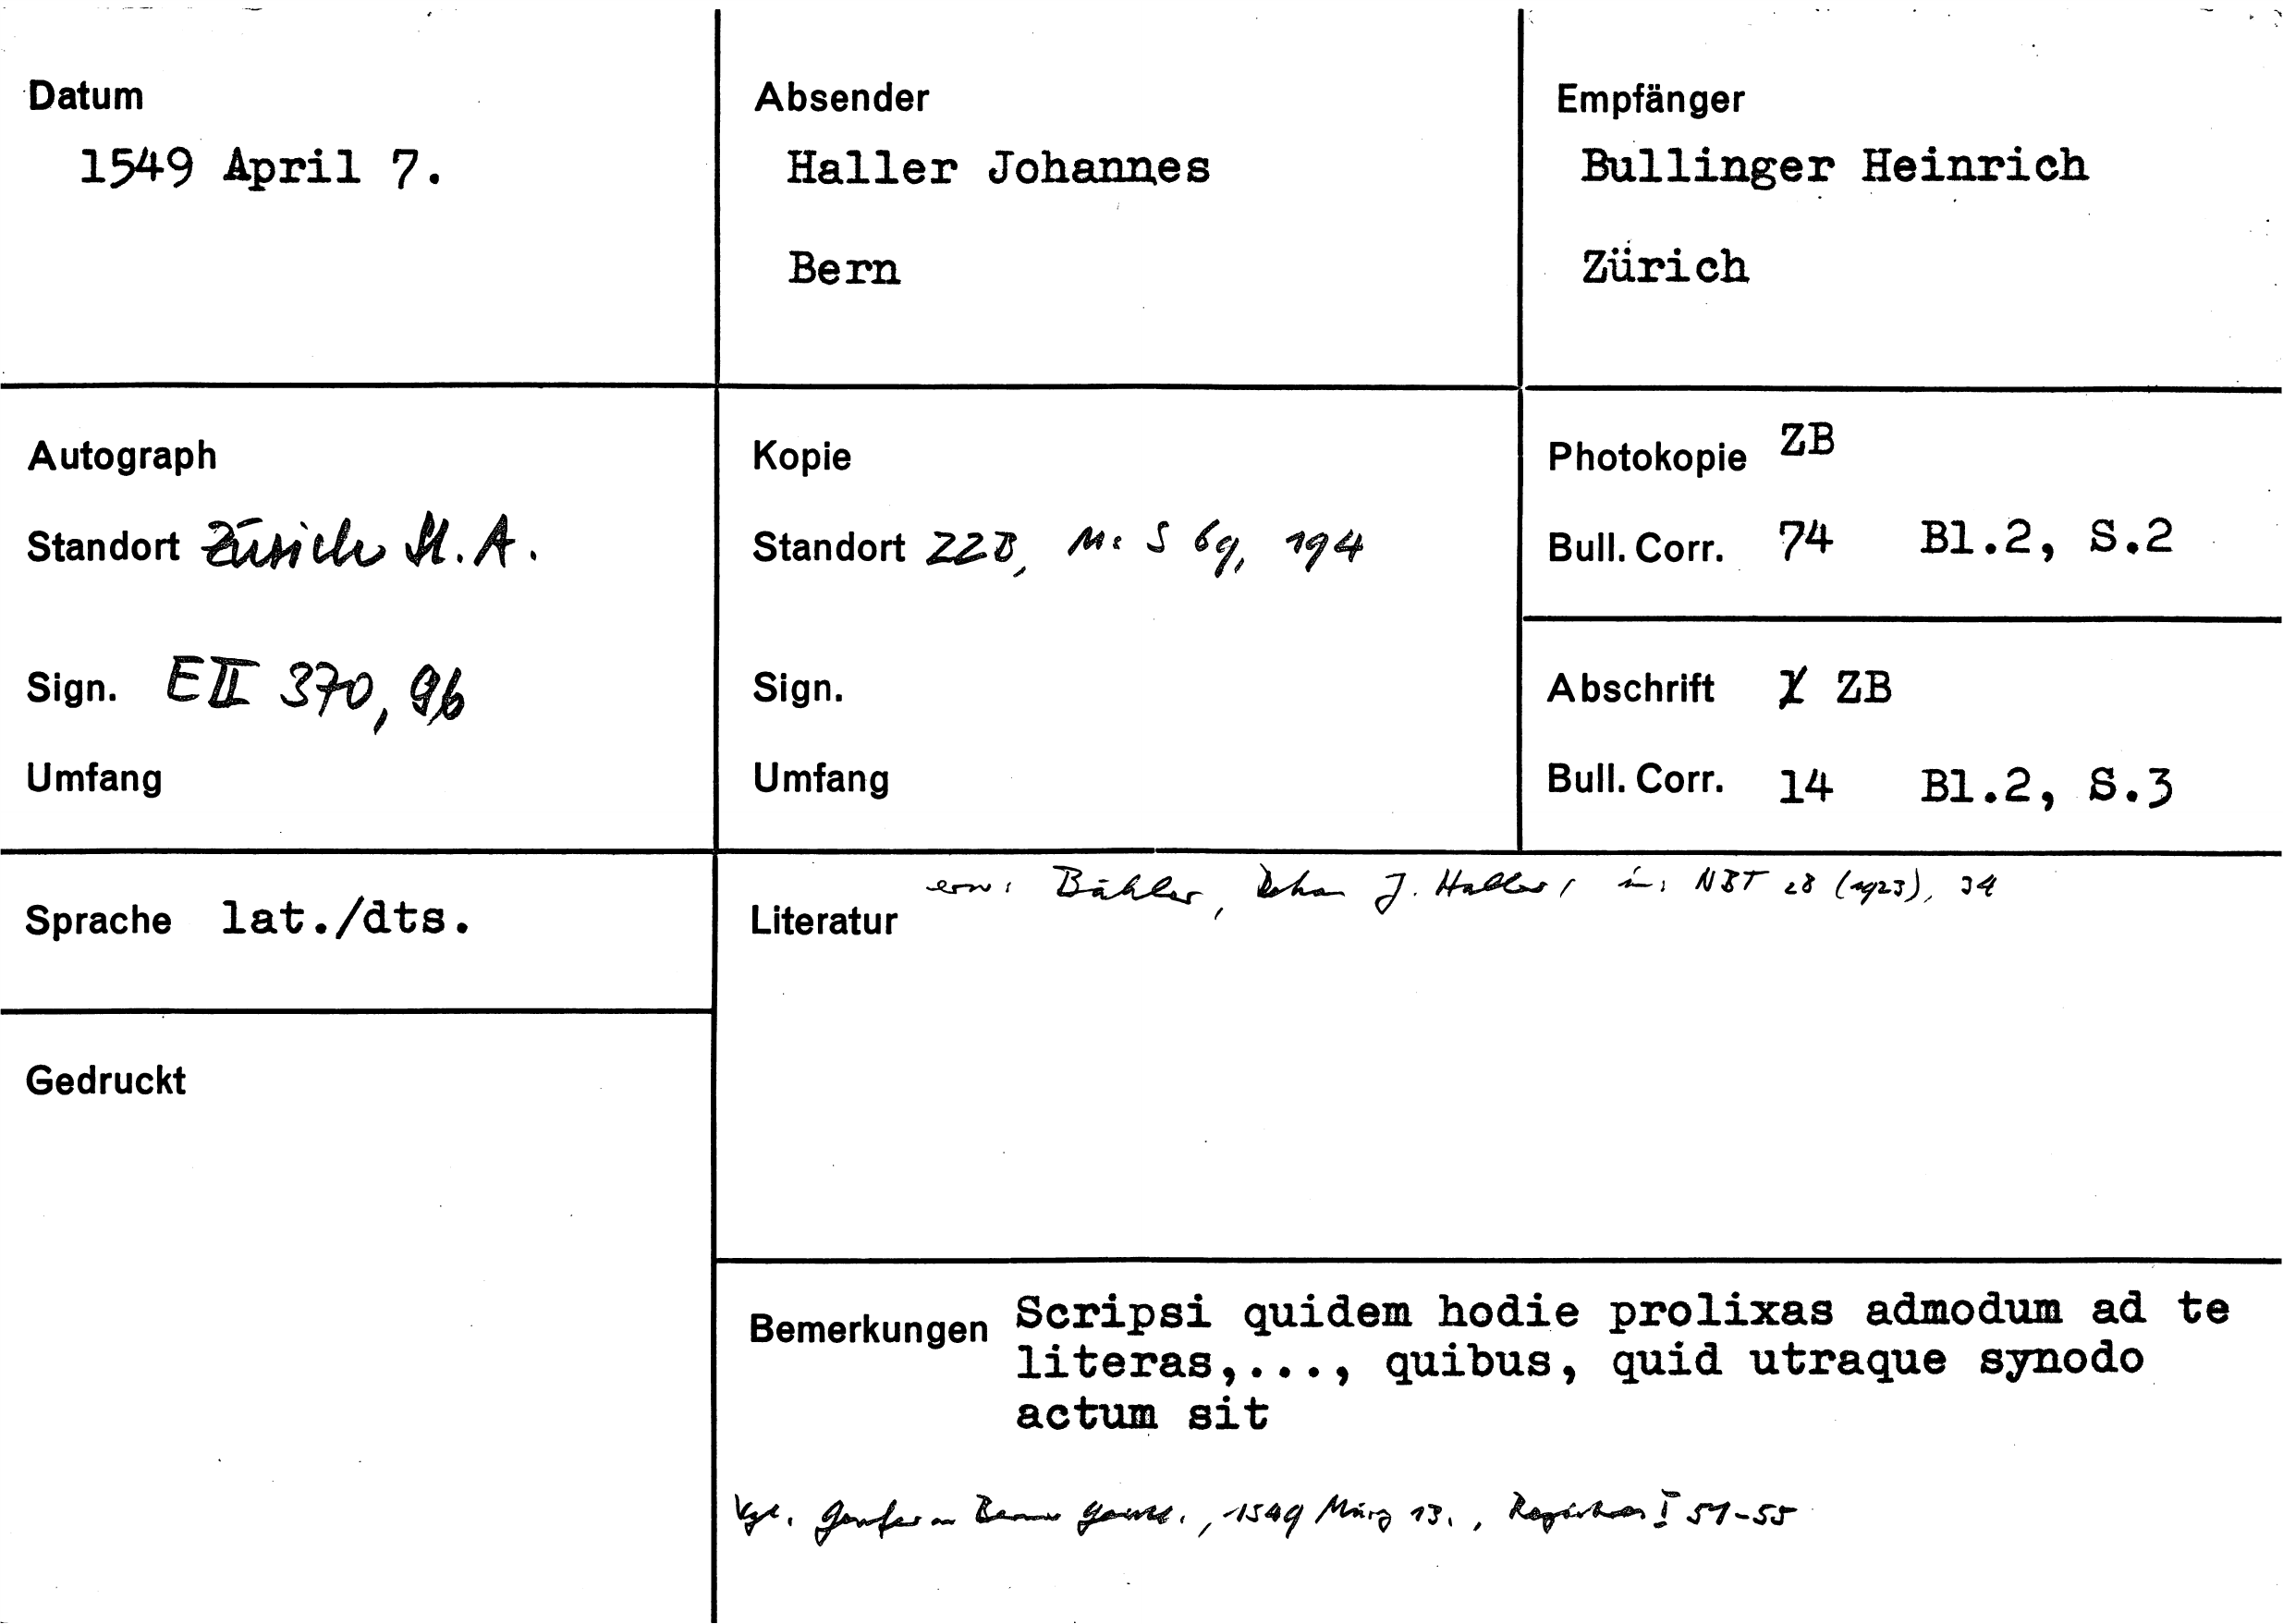 Datum
1549 April 7.
Absender
Haller Johannes
Bern
Empfänger
Bullinger Heinrich
Zürich
Autograph
Standort Zürich St.A.
Sign. EII 370, 96
Umfang
Kopie
Standort ZZB, Ms S 69, 194
Sign.
Umfang
Photokopie ZB
Bull. Corr. 74 Bl.2, S.2
Abschrift ZB
Bull. Corr. 14 Bl.2, S.3
Sprache lat./dts.
Gedruckt
Literatur erw: Bähler, Dekan J. Haller, in: NBT 28 (1923), 34
Bemerkungen Scripsi quidem hodie prolixas admodum ad te
literas,..., quibus, quid utraque synodo
actum sit
Vgl. Genfer an Berner, 1549 März 13., I 51-55